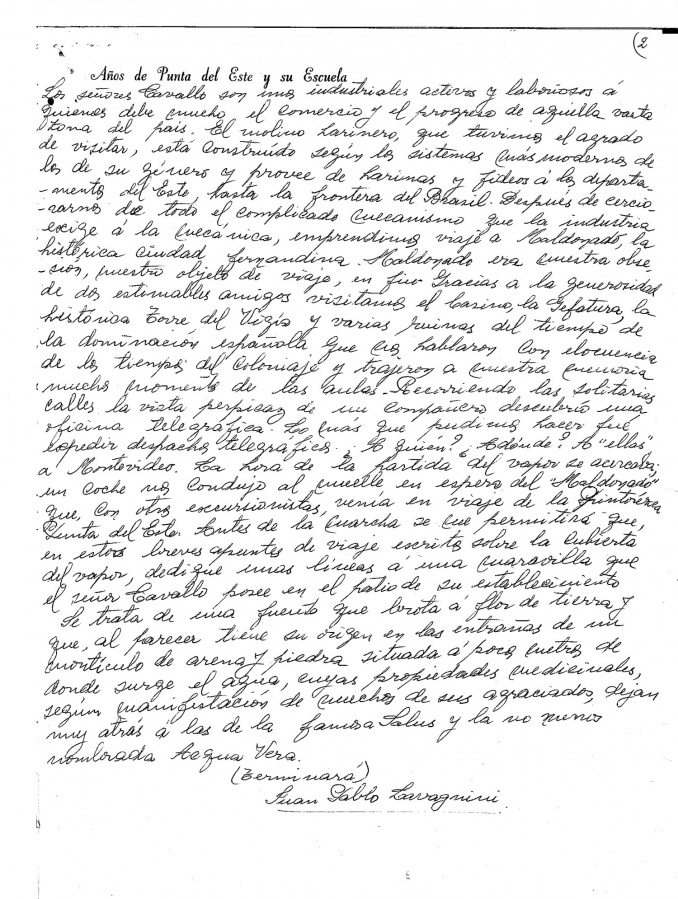 (2
Años de Punta del Este y su Escuela
Los señores Cavallo son unos industriales activos y laboriosos á
quienes debe mucho el comercio y el progreso de aquella vasta
zona del país. El molino harinero, que tuvimos el agrado
de visitar, está construído según los sistemas más modernos de
los de su género y provee de harinas y fideos á los departa-
-mentos del Este, hasta la frontera del Brasil. Después de cercio-
-rarnos de todo el complicado mecanismo que la industria
exige á la mecánica, emprendimos viaje á Maldonado, la
histórica ciudad fernandina. Maldonado era nuestra obse-
-sión, nuestro objeto de viaje, en fin. Gracias a la generosidad
de dos estimables amigos visitamos el Casino, la Jefatura, la
histórica Torre del Vigía y varias ruinas del tiempo de
la dominación española que nos hablaron con elocuencia
de los tiempos del coloniaje y trajeron a nuestra memoria
muchos momentos de las aulas. Recorriendo las solitarias
calles la vista perpicaz de un compañero descubrió una
oficina telegráfica. Lo más que pudimos hacer fué
expedir despachos telegráficos. ¿A quién? ¿Adónde? A "ellas"
a Montevideo. La hora de la partida del vapor se acercaba;
un coche nos condujo al muelle en espera del "Maldonado"
que, con otros excursionistas, venía en viaje de la pintoresca
Punta del Este. Antes de la marcha se me permitirá que,
en estos breves apuntes de viaje escritos sobre la cubierta
del vapor, dedique unas líneas a una maravilla que
el señor Cavallo posee en el patio de su establecimiento
Se trata de una fuente que brota á flor de tierra y
que, al parecer tiene su origen en las entrañas de un
montículo de arena y piedra situada á pocos metros de
donde surge el agua, cuyas propiedades medicinales,
según manifestación de muchos de sus agraciados, dejan
muy atrás á las de la famosa Salus y la no menos
nombrada Acqua Vera.
(Terminará)
Juan Pablo Lavagnini.